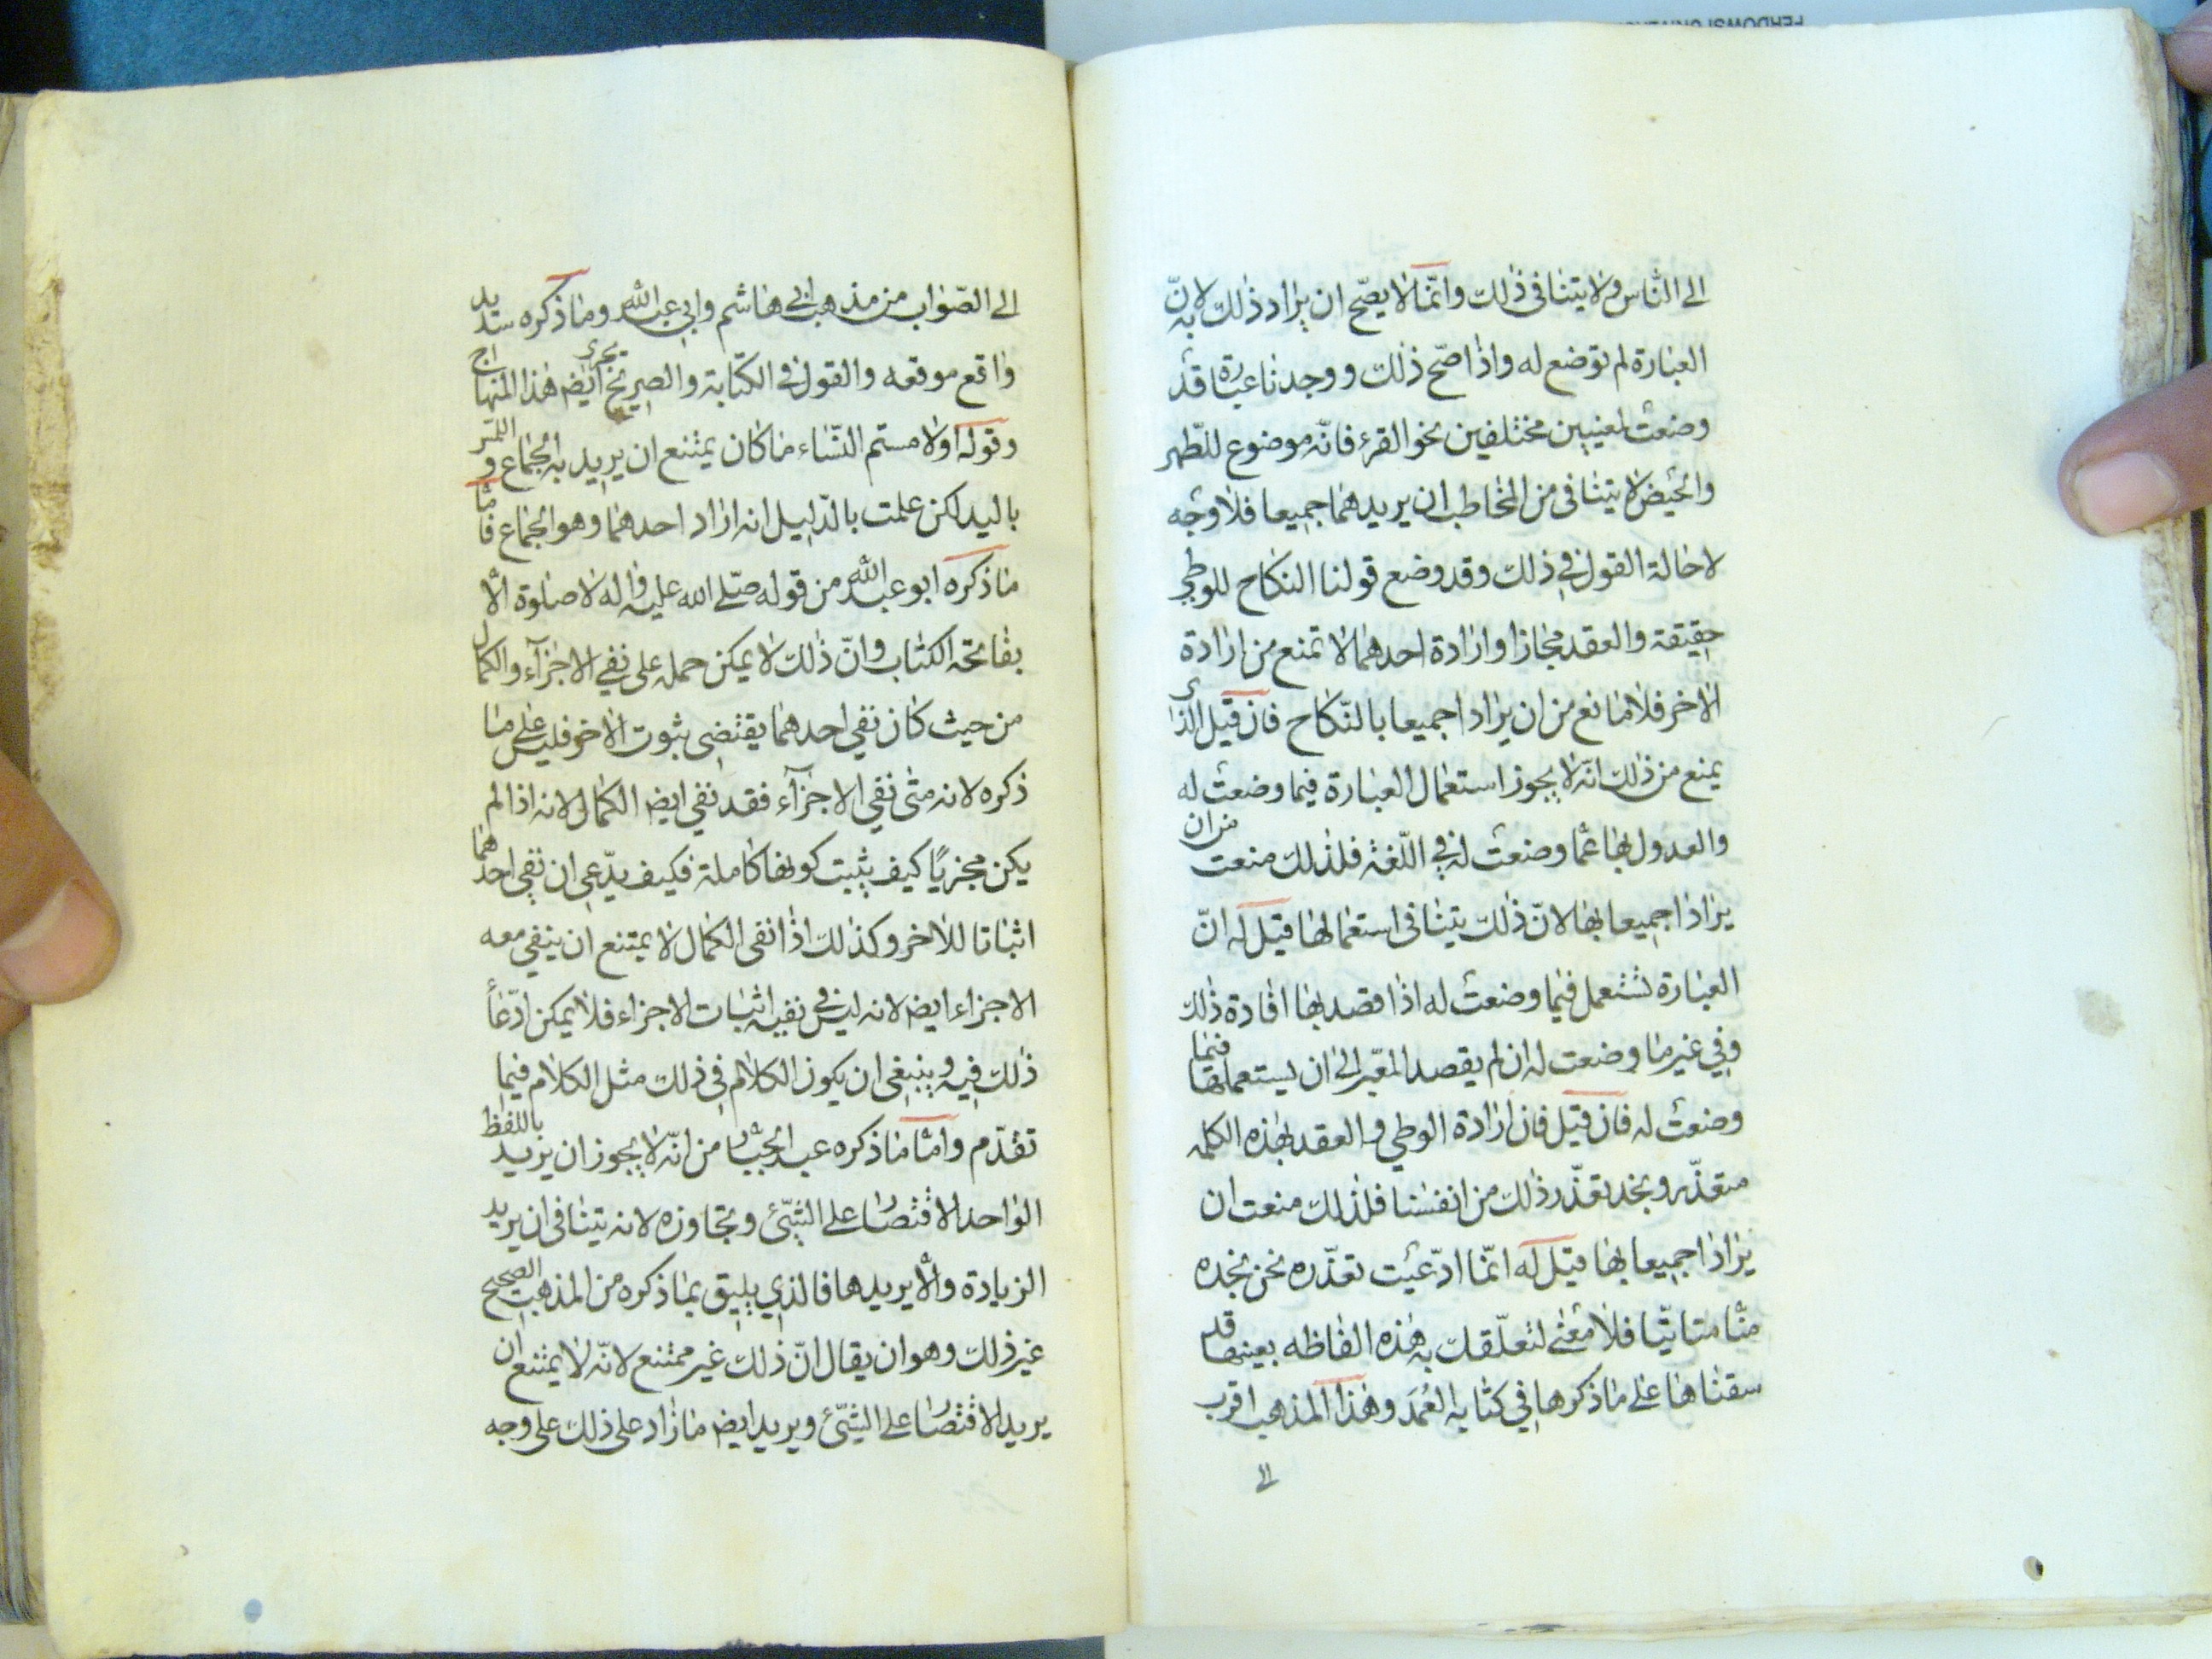 الى الناس ولا يتنافى ذلك وانّما لا يصّح ان يراد ذلك به لانّ
العبارة لم توضع له واذا صّح ذلك ووجدنا عبارة قد
وضعت لمعنيين مختلفين نحو القرء فانّه موضوع للطّهر
والحيض لا يتنافى من المخاطب ان يريدهما جميعا فلا وجه
لاحالة القول في ذلك وقد وضع قولنا النكاح للوطي
حقيقة والعقد مجازا وارادة احدهما لا تمنع من ارادة
الاخر فلا مانع من ان يرادا جميعا بالنّكاح فان قيل الذى
يمنع من ذلك انّه لا يجوز استعمال العبارة فيما وضعت له
والعدول بها عمّا وضعت له في اللّغة فلذلك منعت من ان
يرادا جميعا بها لانّ ذلك يتنافى استعمالها قيل له انّ
العبارة تستعمل فيما وضعت له اذا قصد بها افادة ذلك
وفي غير ما وضعت له ان لم يقصد المعّبر الى ان يستعملها فيما
وضعت له فان قيل فان ارادة الوطي والعقد بهذه الكلمه
متعذّر ونجد تعذّر ذلك من انفسنا فلذلك منعت ان
يرادا جميعا بها قيل له انّما ادّعيت تعذّره نحن نجده
منّا متاتيّا فلا معنى لتعلّقك به هذه الفاظه بعينها قد
سقناها على ما ذكرها في كتابه العُمَد وهذا المذهب اقرب
الى
الى الصّواب من مذهب ابي هاشم وابي عبد الله وما ذكره سديد
واقع موقعه والقول في الكتابة والصريح يجرى ايض هذا المنهاج
وقوله اولامستم النّساء ما كان يمتنع ان يريد به الجماع واللمس
باليد لكن علمت بالدّليل انه اراد احدهما وهو الجماع فامّا
ما ذكره ابو عبد الله من قوله صّلى الله عليه واله لا صلوة الّا
بفاتحة الكتاب وانّ ذلك لا يمكن حمله على نفي الاجزآء والكمال
من حيث كان نفي احدهما يقتضي ثبوت الاخر فليس على ما
ذكره لانه متى نفي الاجزآء فقد نفي ايض الكمال لانه اذا لم
يكن مجزيًا كيف يثبت كونها كاملة فكيف يدّعي ان نفي احدهما
اثباتا للاخر وكذلك اذا نفى الكمال لا يمتنع ان ينفي معه
الاجزاء ايض لانه ليس في نفيه اثبات الاجزاء فلا يمكن ادّعاء
ذلك فيه وينبغي ان يكون الكلام في ذلك مثل الكلام فيما
تقدّم وامّا ما ذكره عبد الجبّار من انّه لا يجوز ان يريد باللفظ
الواحد الاقتصار على الشّئ وتجاوزه لانه يتنافى ان يريد
الزيادة والّا يريدها فالذي يليق بما ذكره من المذهب الصحيح
غير ذلك وهو ان يقال انّ ذلك غير ممتنع لانّه لا يمتنع ان
يريد الاقتصار على الشّئ ويريد ايض ما زاد على ذلك على وجه